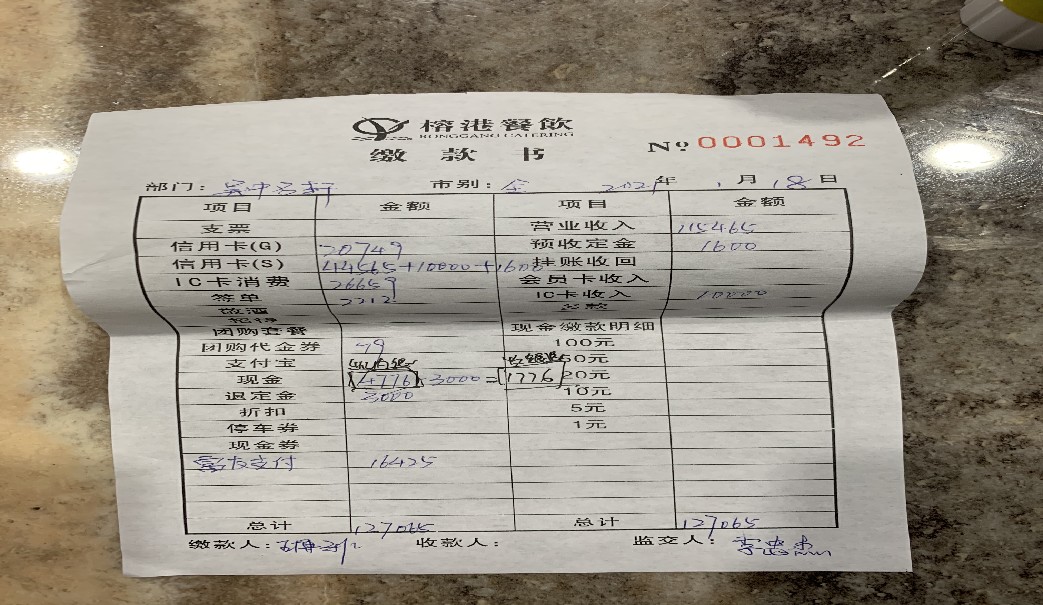 榕港餐飲
RONGGANG CATERING
缴款书
№ 0001492
部门: 市别:全 2021年 1月18日
项目 金额 项目 金额
支票 营业收入 115465
信用卡(G) 20749 预收定金 1600
信用卡(S) 44565+10000+1600 挂账收回
IC卡消费 26659 会员卡收入
签单 2212 IC卡收入 10000
团购套餐 现金缴款明细
团购代金券 79 100元
支付宝 50元
现金 4776-3000=1776 20元
退定金 3000 10元
折扣 5元
停车券 1元
现金券
支付 16425
总计 127065 总计 127065
缴款人: 收款人: 监交人: